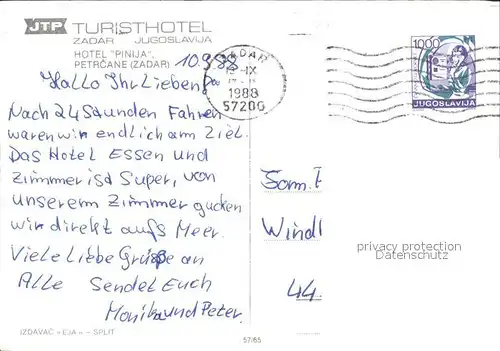 JTP TURISTHOTEL
ZADAR JUGOSLAVIJA
HOTEL "PINIJA",
PETRČANE (ZADAR)
10.9.88
ZADAR
-IX
1988
57200
1000
JUGOSLAVIJA
Hallo Ihr Lieben
Nach 24 Stunden Fahren
waren wir endlich am Ziel.
Das Hotel Essen und
Zimmer ist Super, von
unserem Zimmer gucken
wir direkt aufs Meer.
Viele Liebe Grüsse an
Alle Sendet Euch
Monika und Peter
Windl
44
privacy protection
Datenschutz
IZDAVAČ «EJA» - SPLIT
57/65